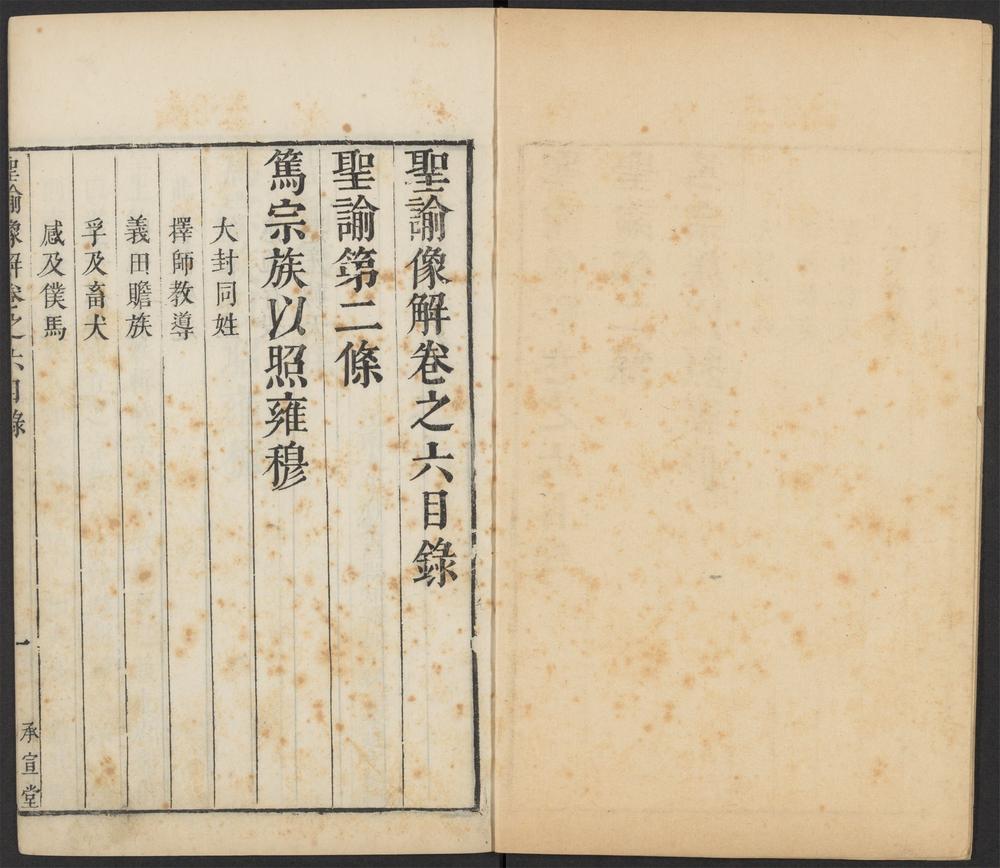 聖諭像解卷之六目錄
聖諭第二條
篤宗族以照雍穆
大封同姓
擇師教導
義田贍族
孚及畜犬
感及僕馬
聖諭像解卷之六目錄
一
承宣堂